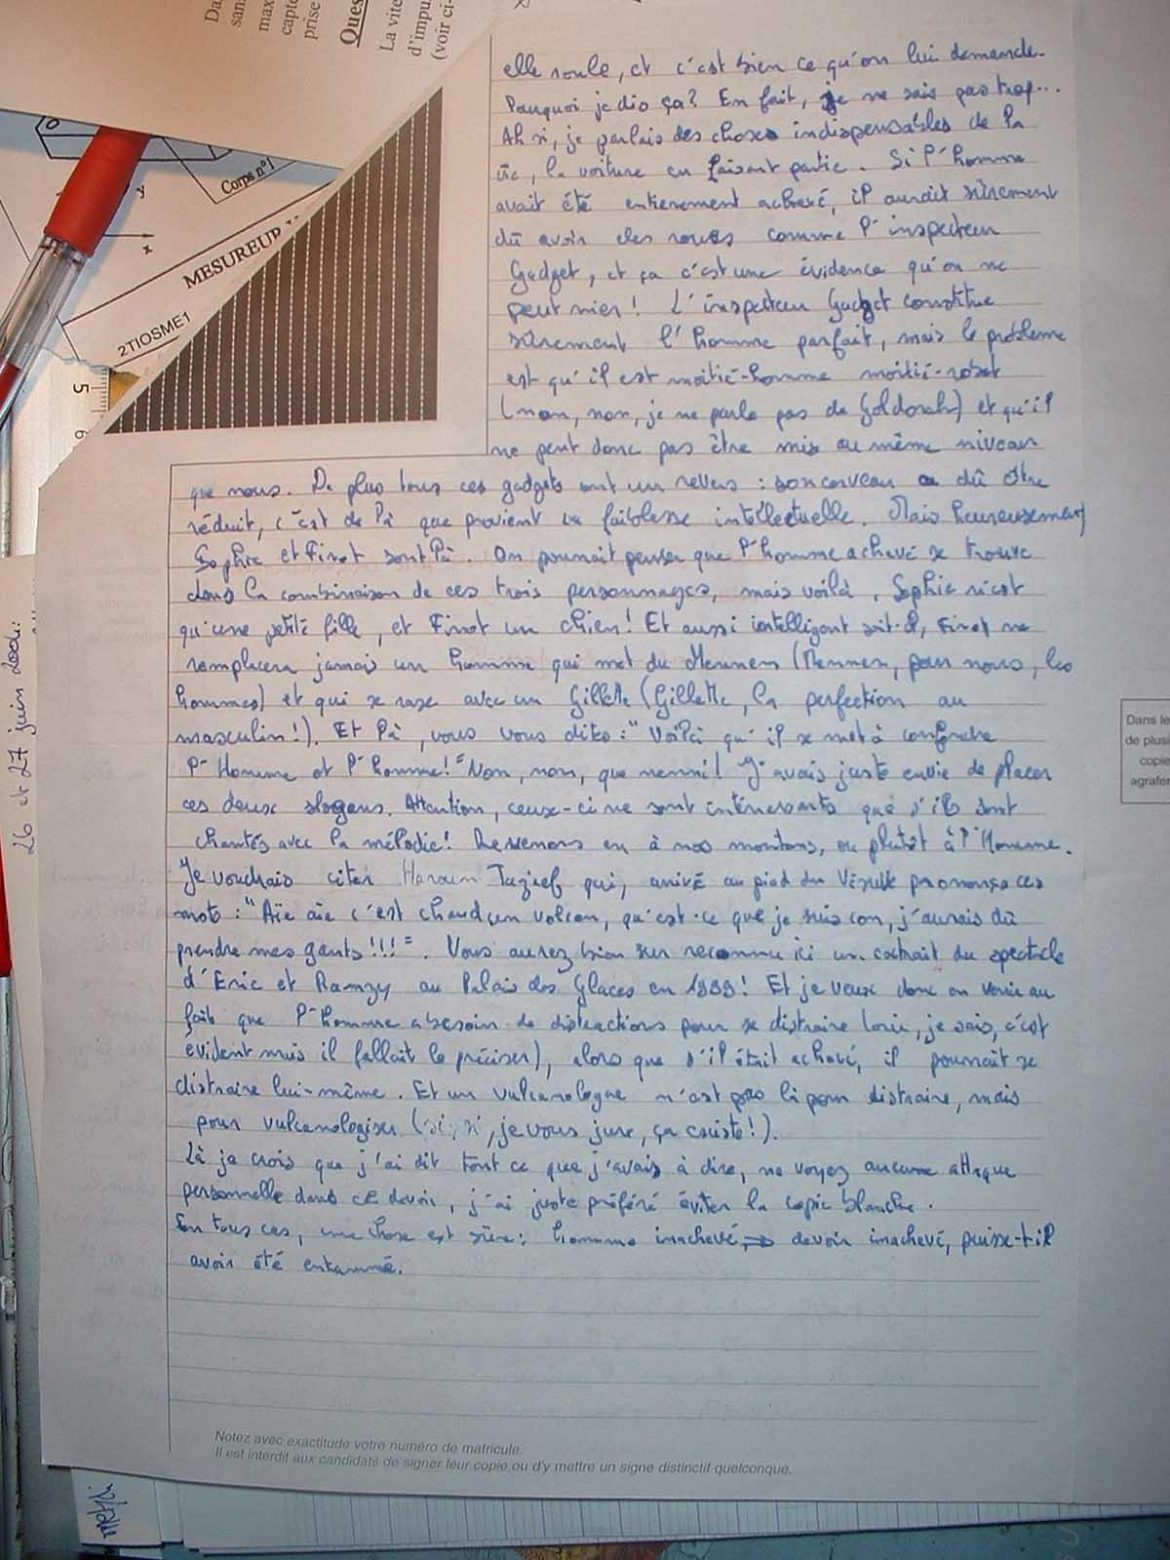 Da
san
max
capt
prise
Ques
La vite
d'impu
(voir ci-
Corps n°1
y
x
MESUREUR
2TIOSME1
5
6
26 et 27 juin
elle roule, et c'est bien ce qu'on lui demande.
Pourquoi je dis ça? En fait, je ne sais pas trop...
Ah si, je parlais des choses indispensables de la
vie, la voiture en faisant partie. Si l'homme
avait été entièrement achevé, il aurait sûrement
dû avoir des roues comme l'inspecteur
Gadget, et ça c'est une évidence qu'on ne
peut nier! L'inspecteur Gadget constitue
sûrement l'homme parfait, mais le problème
est qu'il est moitié-homme moitié-robot
(non, non, je ne parle pas de Goldorak) et qu'il
ne peut donc pas être mis au même niveau
que nous. De plus tous ces gadgets ont un revers : son cerveau a dû être
réduit, c'est de là que provient sa faiblesse intellectuelle. Mais heureusement
Sophie et Finot sont là. On pourrait penser que l'homme achevé se trouve
dans la combinaison de ces trois personnages, mais voilà, Sophie n'est
qu'une petite fille, et Finot un chien! Et aussi intelligent soit-il, Finot ne
remplacera jamais un homme qui met du Mennen (Mennen, pour nous, les
hommes) et qui se rase avec un Gillette (Gillette, la perfection au
masculin!). Et là, vous vous dites : "Voilà qu'il se met à confondre
l'Homme et l'homme!" Non, non, que nenni! J'avais juste envie de placer
ces deux slogans. Attention, ceux-ci ne sont intéressants que s'ils sont
chantés avec la mélodie! Revenons en à nos moutons, ou plutôt à l'Homme.
Je voudrais citer Haroun Tazieff qui, arrivé au pied du Vésuve prononça ces
mots : "Aïe aïe c'est chaud un volcan, qu'est-ce que je suis con, j'aurais dû
prendre mes gants!!!". Vous aurez bien sur reconnu ici un extrait du spectacle
d'Eric et Ramzy au Palais des Glaces en 1999! Et je veux donc en venir au
fait que l'homme a besoin de distractions pour se distraire (oui, je sais, c'est
evident mais il fallait le préciser), alors que s'il était achevé, il pourrait se
distraire lui-même. Et un vulcanologue n'est pas là pour distraire, mais
pour vulcanologiser (si, si, je vous jure, ça existe!).
Là je crois que j'ai dit tout ce que j'avais à dire, ne voyez aucune attaque
personnelle dans ce devoir, j'ai juste préféré éviter la copie blanche.
En tous cas, une chose est sûre : homme inachevé ⇒ devoir inachevé, puisse-t-il
avoir été entammé.
Dans le
de plusi
copie
agrafer
Notez avec exactitude votre numéro de matricule.
Il est interdit aux candidats de signer leur copie ou d'y mettre un signe distinctif quelconque.